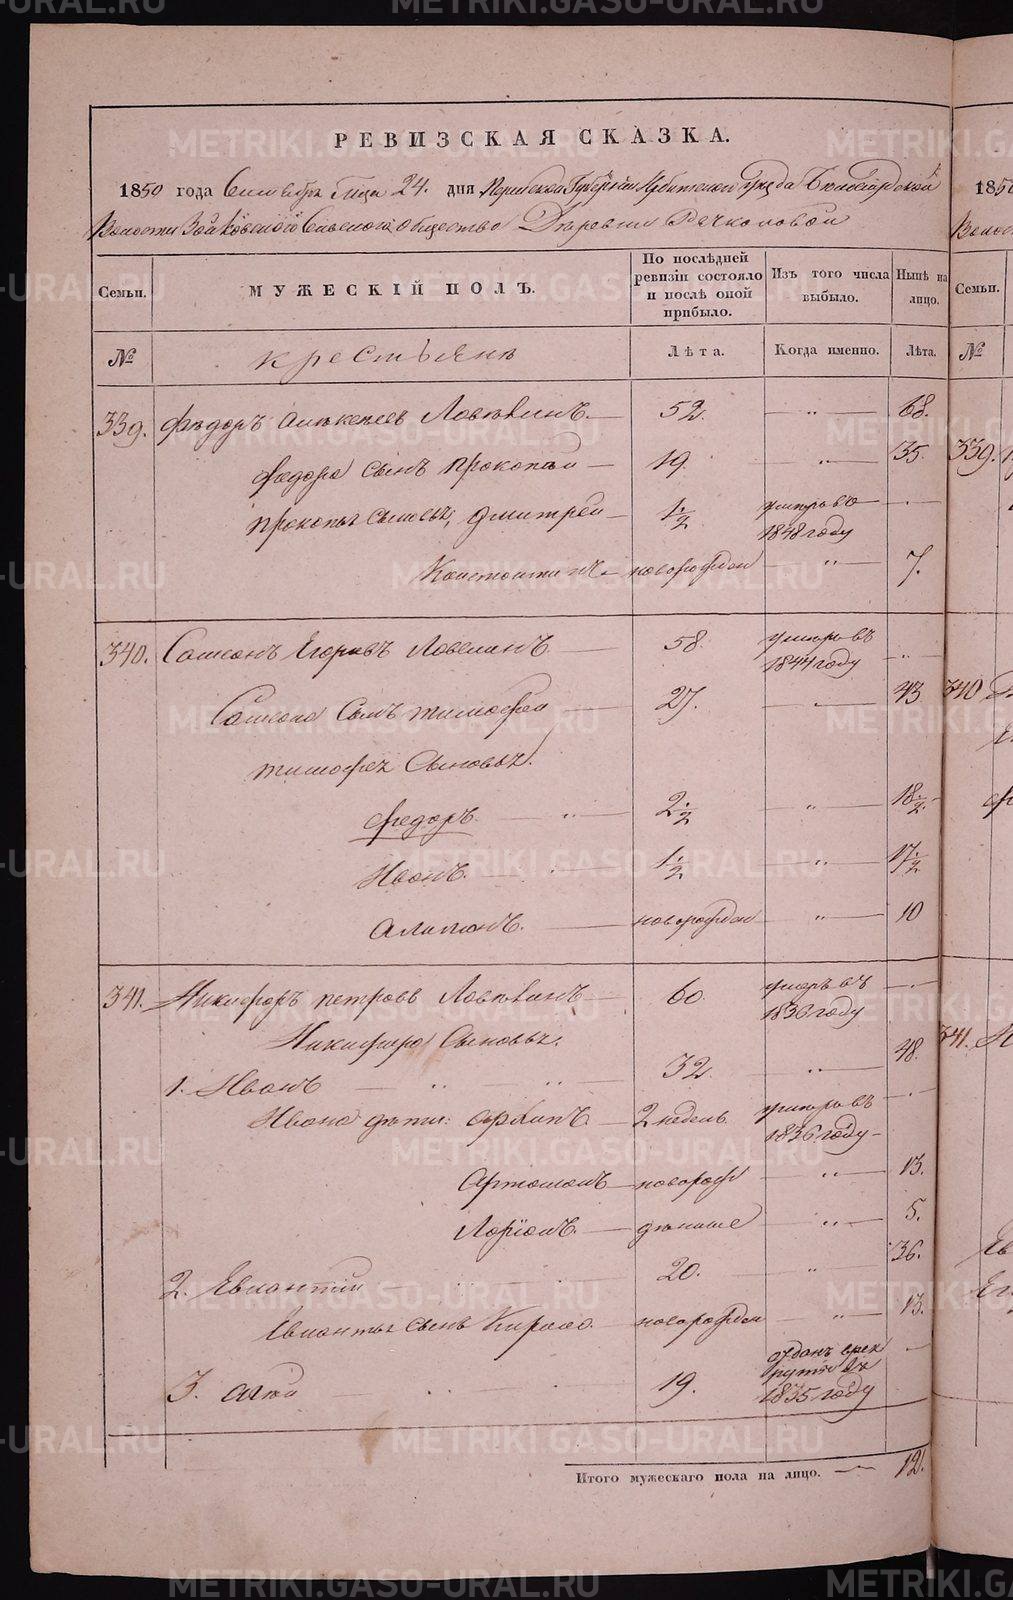 METRIKI.GASO-URAL.RU
РЕВИЗСКАЯ СКАЗКА.
1850 года Сентября м̃ца 24. дня Пермской Губернiи Ирбитскаго уѣзда Белослудской
Волости Зайковскаго Сельскаго Общества Деревни Речкаловой
Семьи. МУЖЕСКIЙ ПОЛЪ. По послѣдней ревизiи состояло и послѣ оной прибыло. Изъ того числа выбыло. Нынѣ на лицо. Семьи.
№ крестьянъ Лѣта. Когда именно. Лѣта. №
339. Федоръ Алексеев Ловыкинъ. 52. — „ — 68.
Федора сынъ Прокопей — 19. — „ — 35. 339.
Прокопья сыновья, Дмитрей — 1 1/2 умеръ въ 1848 году — . —
Констонтинъ — новорожден — „ — 7.
340. Самсонъ Егоровъ 58. умеръ въ 1844 году — . —
Самсона Сынъ Тимофей 27. — „ — 43 340
Тимофея Сыновья.
Федоръ. — „ — 2 1/2 — „ — 18 1/2.
Иванъ. 1 1/2 — „ — 17 1/2
Алимпанъ. — новорожден — „ — 10
341. Никифоръ Петровъ 60. умеръ въ 1836 году — . —
Никифора Сыновья.
1. Иванъ — „ — „ — 32. — „ — 48. 341.
Ивана дѣти: Архипъ — 2 недель умеръ въ 1836 году — — . —
Артомонъ — новорож — „ — 13.
Ларiонъ. — дѣташе — „ — 5.
2. Евлантiй 20. — „ — 36.
Евлантья сынъ Кирило. — новорожден — „ — 13.
3. 19. отданъ в рекруты въ 1835 году —
Итого мужескаго пола на лицо. — 12.